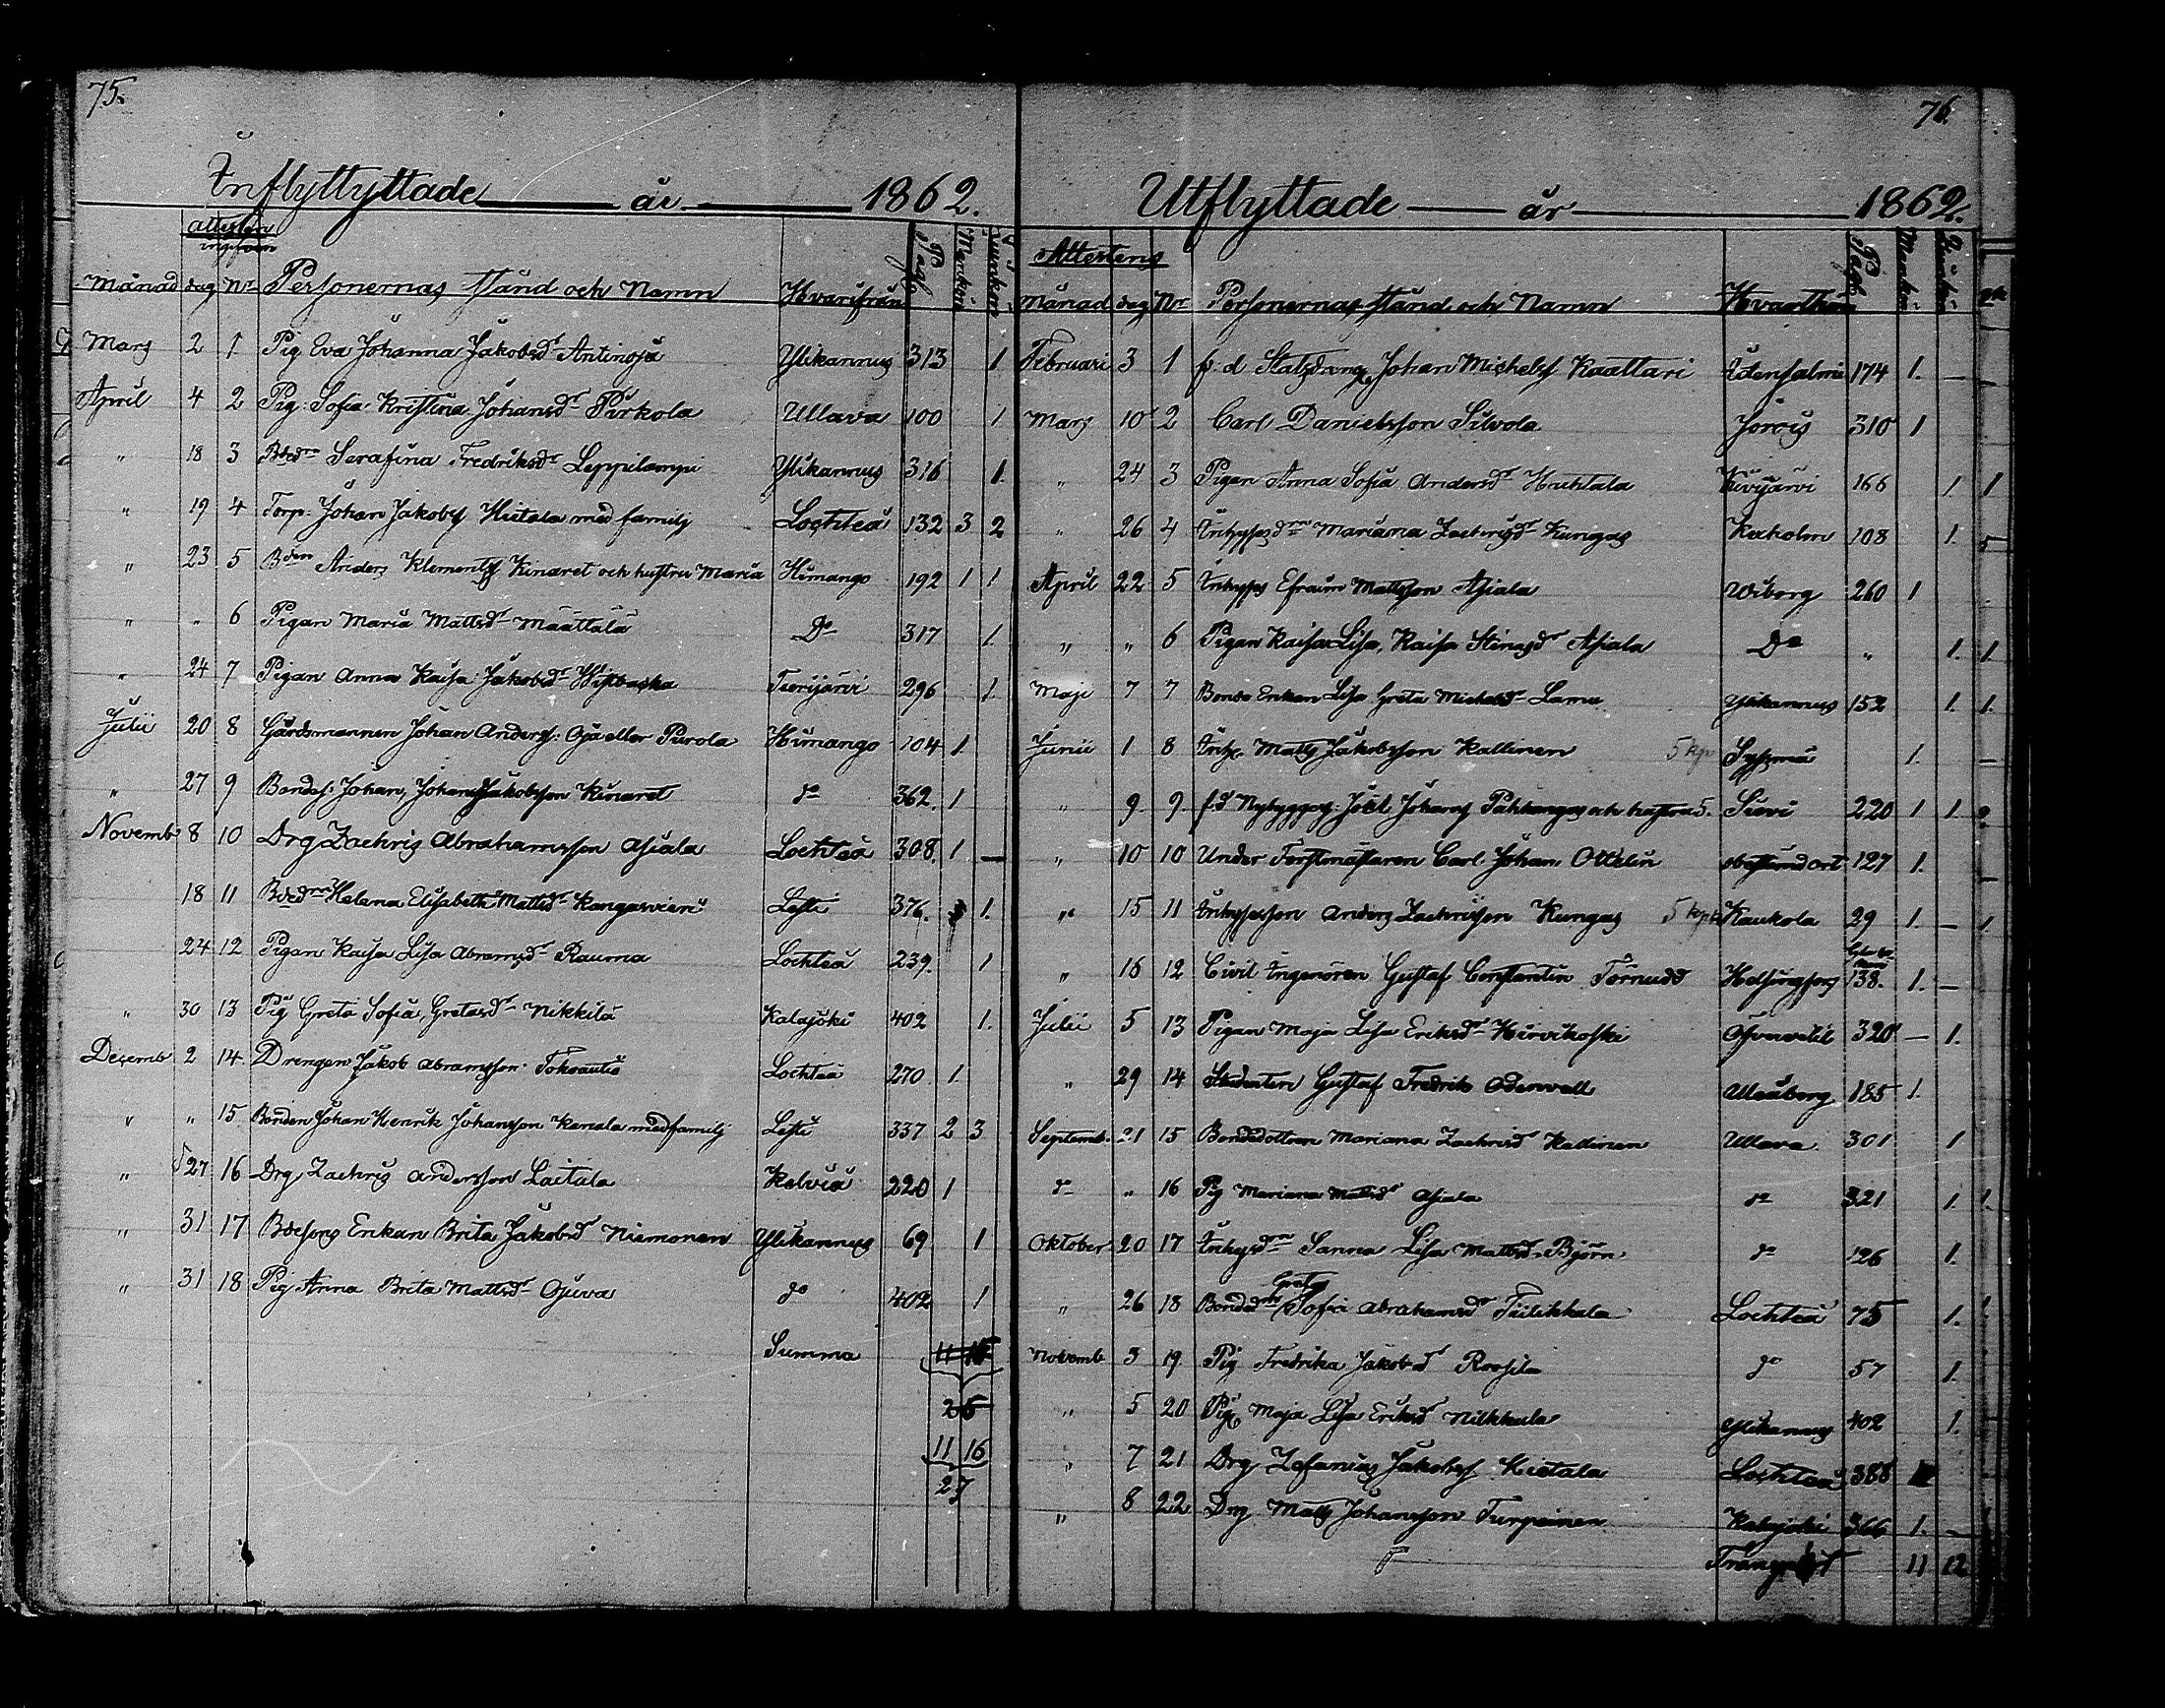 75.
Inflyttyttade år 1862.
attesten ingifven
Månad dag Nr Personernas stånd och Namn Hvarifrån Pag. Mankön Qvinkön
Mars 2 1 Pig. Eva Johanna Jakobsdr Antinoja Ylikannus 313 1
April 4 2 Pig. Sofia Kristina Johansdr Pirkola Ullava 100 1
" 18 3 Serafina Fredriksdr Leppilampi Ylikannus 316 1.
" 19 4 Torp. Johan Jakobss Hietala med familj Lochteå 132 3 2
" 23 5 Bden Anders Klementss Kinaret och hustru Maria Himango 192 1 1
" " 6 Pigan Maria Mattsdr Määttälä Do 317 1.
" 24 7 Pigan Anna Kaisa Jakobsdr 296 1.
Julii 20 8 Gårdsmannen Johan Anderss. Oja eller Purola Himango 104 1
" 27 9 Bondes. Johan, Johan Jakobsson Kinaret do 362. 1
Novemb 8 10 Drg Zachris Abrahamsson Asiala Lochteå 308. 1 —
18 11 Helena Elisabeth Mattsdr Kangasvieri Lesti 376. 1.
24 12 Pigan Kaisa Lisa Abramsdr Rauma Lochteå 239. 1
" 30 13 Pig Greta Sofia, Gretasdr Nikkilä Kalajoki 402 1.
Decemb 2 14. Drengen Jakob Abramsson Tokvautio Lochteå 270 1.
" " 15 Bonden Johan Henrik Johansson Kanala med familj Lesti 337 2 3
" 27 16 Drg Zachris Andersson Laitala Kelviå 220 1
" 31 17 Enkan Brita Jakobsd Niemonen Ylikannus 69 1
" 31 18 Pig Anna Brita Mattsdr Ojuva do 402 1
Summa 11 15
26
11 16
27
76.
Utflyttade år 1862.
Attestens
Månad dag Nr Personernas stånd och Namn Hvarthän Pag. Mankön Qvinkön
Februari 3 1 f. d Statsdreng Johan Michelss Kaattari Idensalmi 174 1. —
Mars 10 2 Carl Danielsson Silvola Jorois 310 1
" 24 3 Pigan Anna Sofia Andersdr Huhtala Kivijärvi 166 1.
" 26 4 Mariana Zachrisdr Kungas Kexholm 108 1.
April 22 5 Inhyses Efraim Mattsson Asiala Wiborg 260 1
" " 6 Pigan Kaisa Lisa, Kaisa Stinasdr Asiala Do " 1.
Maji 7 7 Bonde Enkan Lisa Greta Michelsdr Lama Ylikannus 152 1.
Junii 1 8 Inh. Matts Jakobsson Kallinen 5 kp Sysmä 1.
" 9 9. f.d Nybyggar. Joel Johanss Pahkangas och hustru 5. Sievi 220 1 1.
" 10 10 Under Forstmästaren Carl Johan Ottelin obestämd ort 127 1.
" 15 11 Inhysesson Anders Zachrisson Kungas 5 kp Kaukola 29 1. —
" 16 12 Civil Ingenören Gustaf Constantin Törnudd Helsingfors 138. 1. —
Julii 5 13 Pigan Maja Lisa Eriksdr Hirvikoski 320 — 1.
" 29 14 Studenten Gustaf Fredrik Odenwall Uleåborg 185 1.
Septemb. 21 15 Bondedottren Mariana Zachrisd Kallinen Ullava 301 1
do " 16 Pig Mariana Mattsdr Asiala do 321 1.
Oktober 20 17 Sanna Lisa Mattsdr Björn do 126 1.
" 26 18 Greta Sofia Abrahamsdr Tiilikkala Lochteå 75 1.
Novemb 3 19. Pig Fredrika Jakobsd Roosila do 57 1.
" 5 20 Pig Maja Lisa Eriksd Nilkkula Ylikannus 402 1.
" 7 21 Drg Zefanias Jakobss. Hietala Lochteå 388 1
" 8 22 Drg Matts Johansson Turpeinen Kalajoki 366 1. —
Transport 11 12